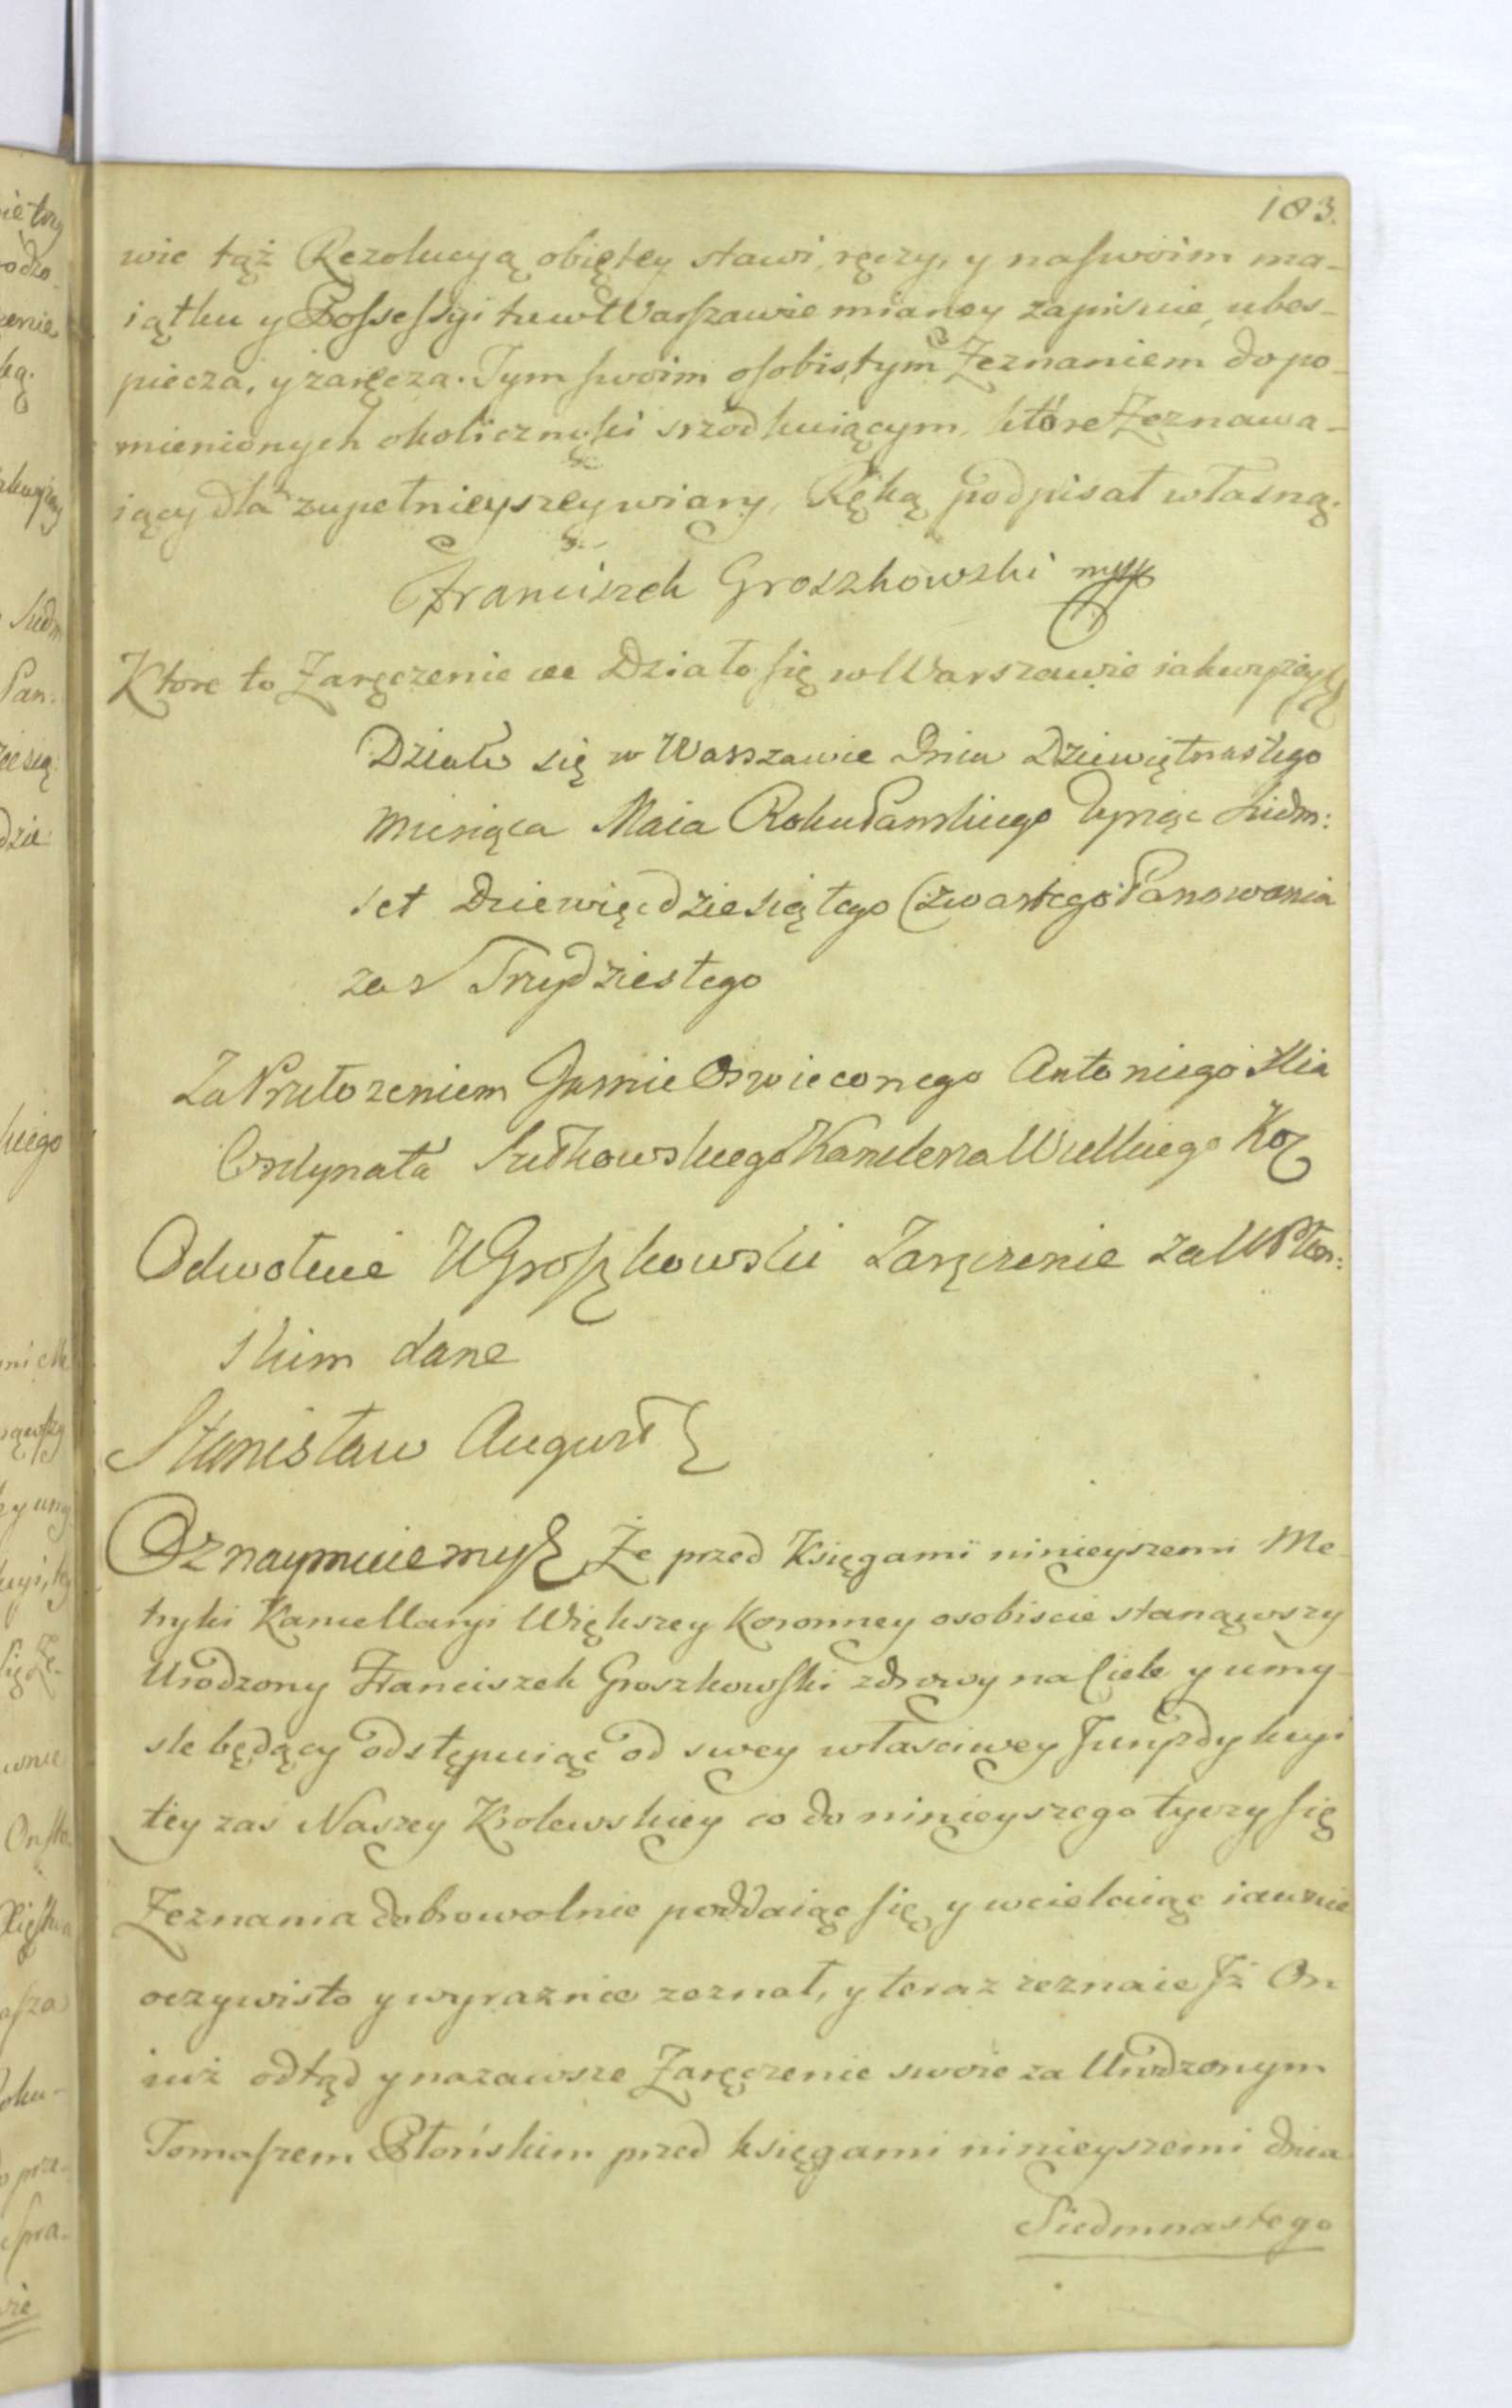 183.
wie tąż Rezolucyą obiętey stawi, ręczy, y na swoim ma-
iątku y Possessyi tu w Warszawie mianey zapisuie, ubes-
piecza, y zaręcza. Tym swoim osobistym Zeznaniem do po-
mienionych okolicznośki srzodkuiącym, które Zeznawa-
iący dla zupełnieyszey wiary, Ręką podpisał własną.
Franciszek Groszkowski mpp
Ktore to Zaręczenie Działo się w Warszawie iak wyżey
Działo się w Warszawie Dnia Dziewiętnastego
Miesiąca Maia Roku Panskiego Tysiąc Siedm:
set Dziewiędziesiątego Czwartego Panowania
zas Trzydziestego
Za Przełożeniem Jasnie Oswieconego Antoniego Xcia
Ordynata Sułkowskiego Kanclerza Wielkiego Kor
Odwołuie U Groszkowski Zaręczenie za U Błon:
skim dane
Stanisław August
Oznaymuiemy Że przed Księgami ninieyszemi Me
tryki Kancellaryi Większey Koronney osobiscie stanąwszy
Urodzony Franciszek Groszkowski zdrowy na Ciele y umy-
sle będący odstępuiąc od swey własciwey Juryzdykcyi
tey zas Naszey Krolewskiey co do ninieyszego tyczy się
Zeznania dobrowolnie poddaiąc się, y wcielaiąc iawnie
oczywisto y wyraznie zeznał, y teraz zeznaie Jż On
iuż odtąd y nazawsze Zaręczenie swoie za Urodzonym
Tomaszem Błońskim przed księgami ninieyszemi dnia
Siedmnastego